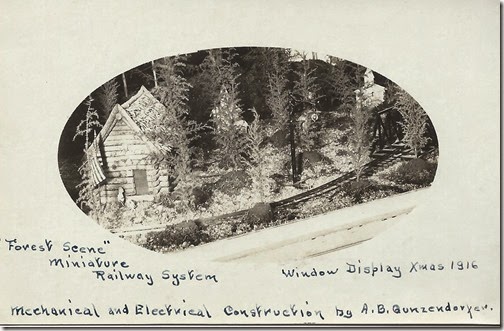 "Forest Scene"
Miniature
Railway System
Window Display Xmas 1916
Mechanical and Electrical Construction by A.B. Gunzendorfer.